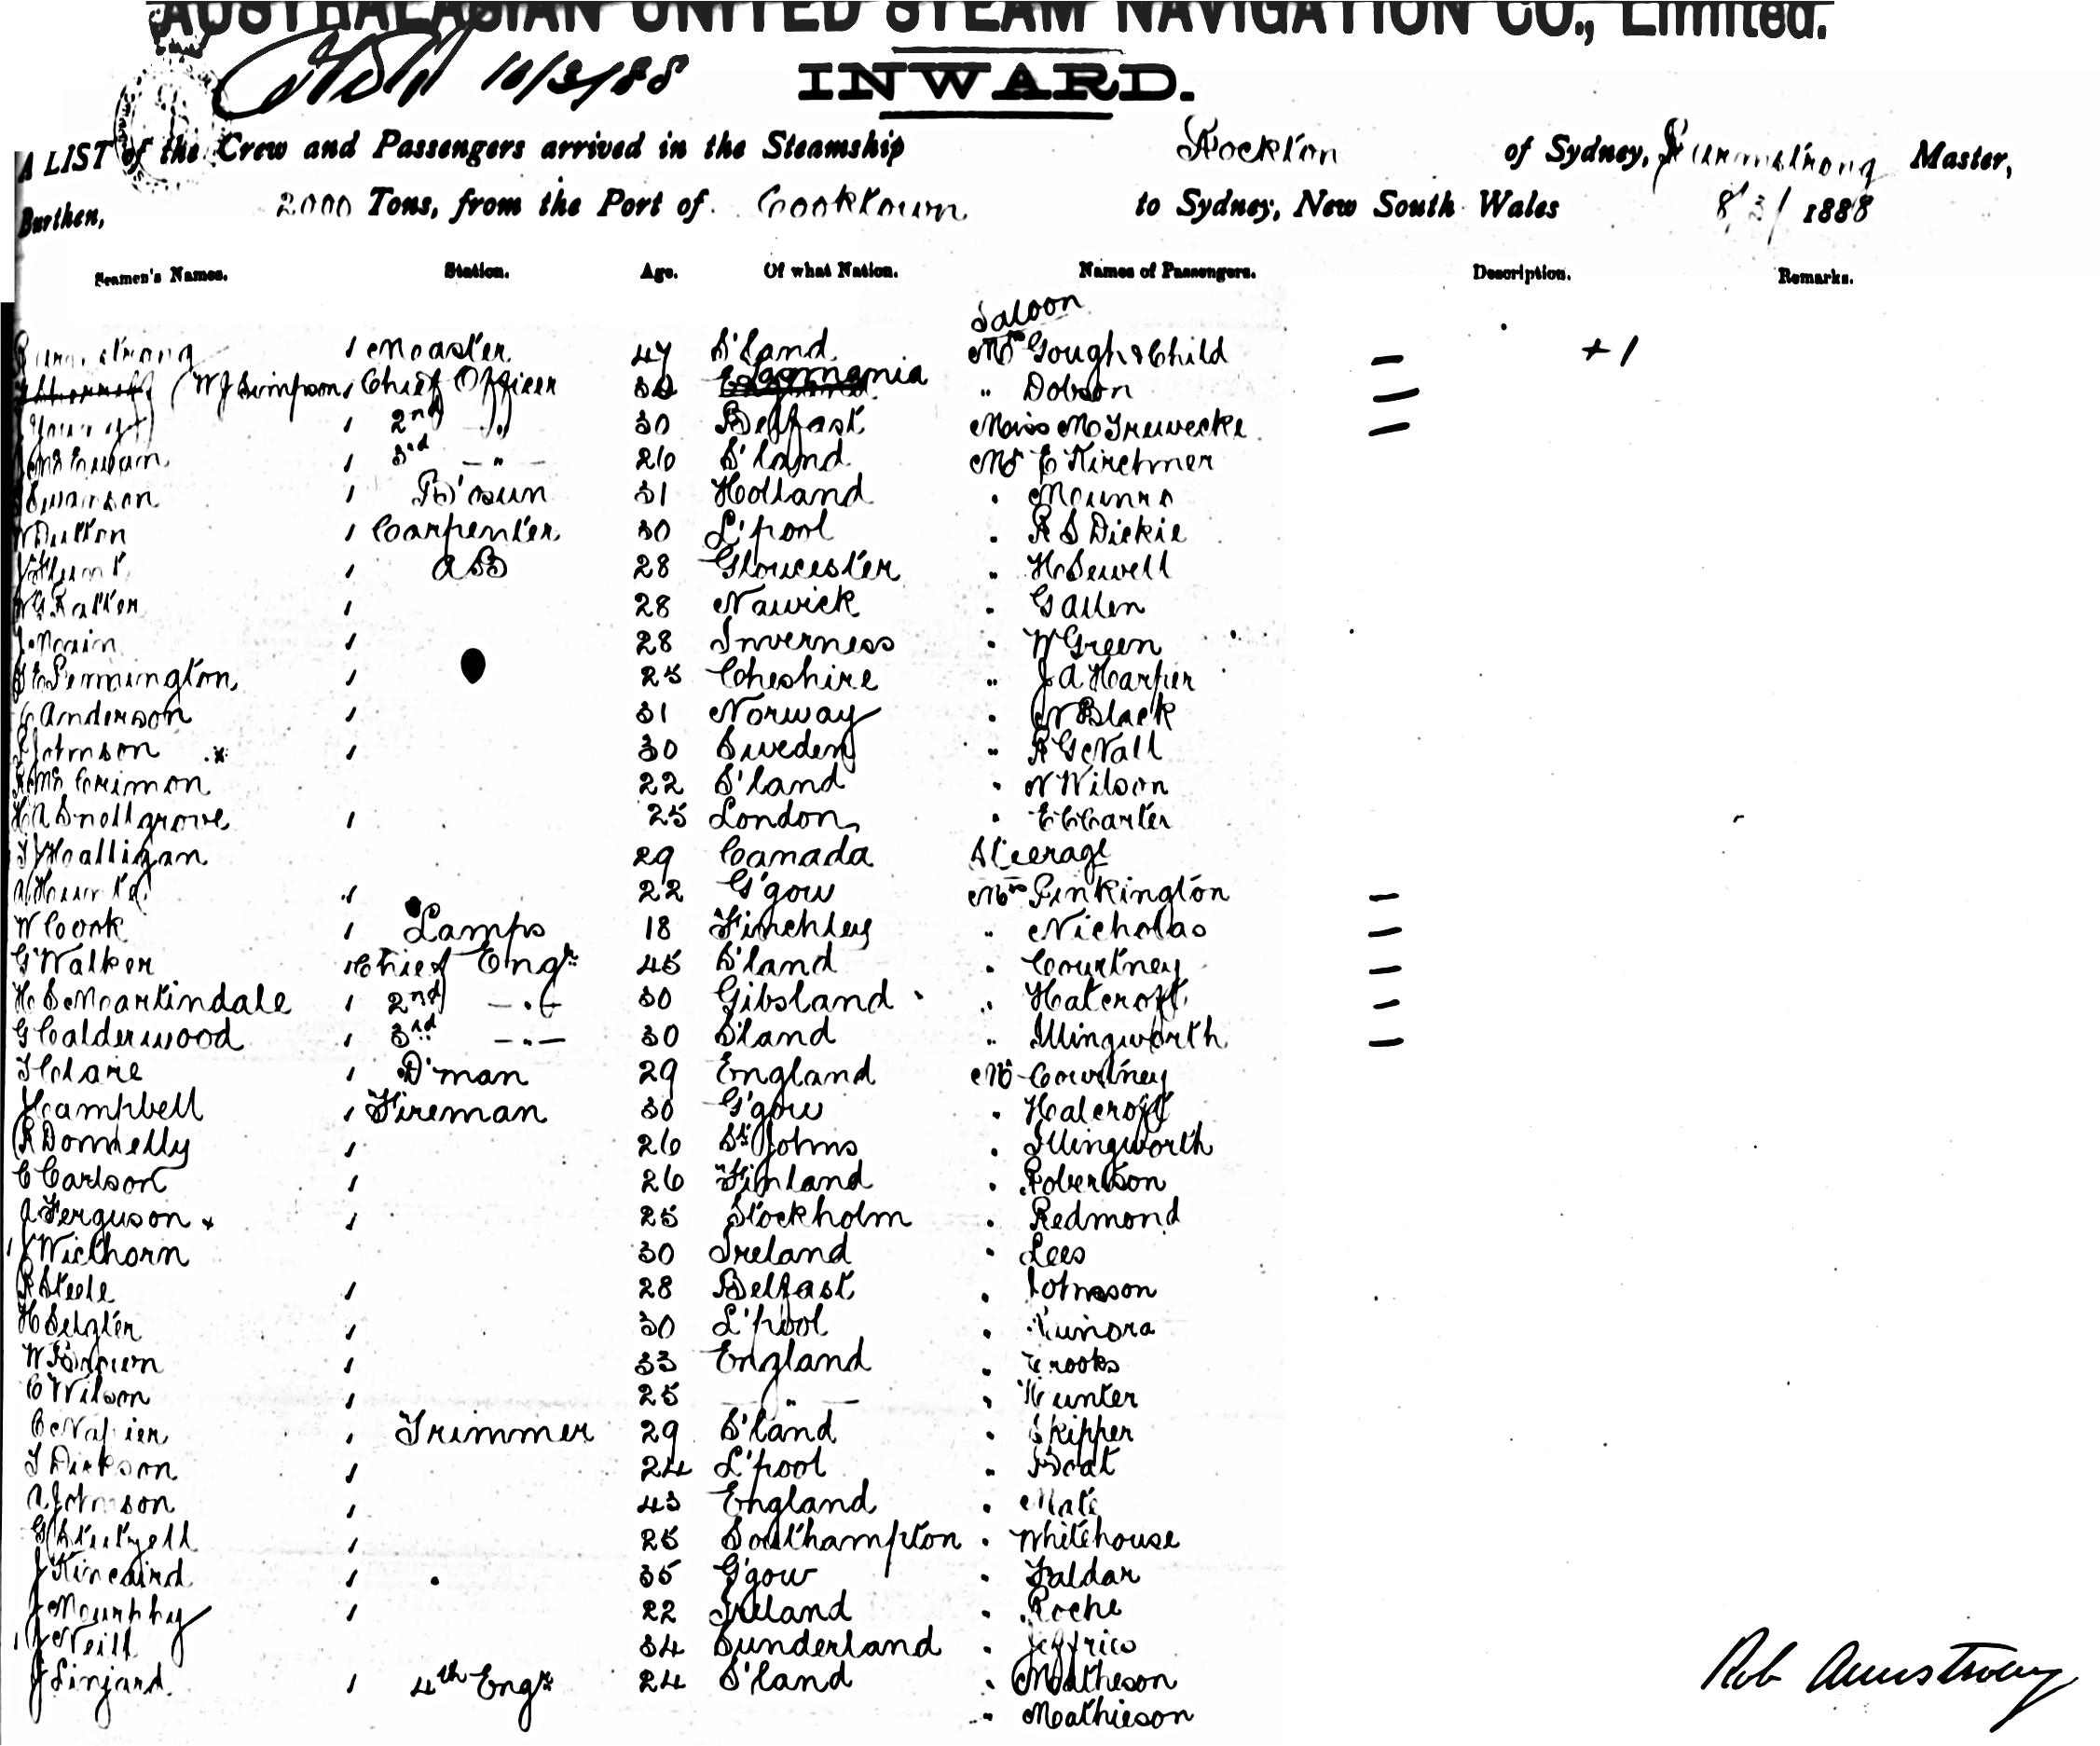 AUSTRALASIAN UNITED STEAM NAVIGATION CO., Limited.
10/3/88 INWARD.
A LIST of the Crew and Passengers arrived in the Steamship Rockton of Sydney, R Armstrong Master,
Burthen, 2000 Tons, from the Port of Cooktown to Sydney, New South Wales 8/3/1888
Seamen's Names. Station. Age. Of what Nation. Names of Passengers. Description. Remarks.
Saloon
Armstrong 1 Master 47 S'land Mrs Gough & Child — +1
W J Simpson 1 Chief Officer 30 Tasmania " Dobson —
Young 1 2nd " 30 Belfast Miss M Truwecke —
McEwan 1 3rd — " — 26 S'land Mr E Kirchner
Swanson 1 B'osun 31 Holland " Munro
Dutton 1 Carpenter 30 L'pool " R S Dickie
Hunt 1 AB 28 Gloucester " H Sewell
1 28 Nawick " G Allen
Main 1 28 Inverness " W Green
Pennington 1 25 Cheshire " J A Harper
Anderson 1 31 Norway " N Black
Johnson x 1 30 Sweden " R G Nall
McCrimon 22 S'land " N Wilson
H A Snellgrove 1 25 London " E C Carter
T J Halligan 29 Canada Steerage
1 22 G'gow Mrs Pinkington —
W Cook 1 Lamps 18 Finchley " Nicholas —
G Walker 1 Chief Engr 45 S'land " Courtney —
H S Martindale 1 2nd — " — 30 Gibsland " Halcroft —
G Calderwood 1 3rd — " — 30 S'land " Illingworth —
T Clare 1 D'man 29 England Mr Courtney
J Campbell 1 Fireman 30 G'gow " Halcroft
R Donnelly 1 26 St Johns " Illingworth
C Carlson 1 26 Finland " Robertson
A Ferguson x 1 25 Stockholm " Redmond
1 J Wielhorn 30 Ireland " Lees
R Steele 1 28 Belfast " Johnson
H Selzler 1 30 L'pool
W Brown 1 33 England " Crooks
C Wilson 1 25 — " — " Hunter
C Napier 1 Trimmer 29 S'land " Skipper
T Dickson 1 24 L'pool " Boat
A Johnson 1 43 England " Mate
1 25 Southampton " Whitehouse
J Kincaird 1 35 G'gow " Faldar
J Murphy 1 22 Ireland " Roche
1 J Neill 34 Sunderland " Jeffries
J Sinjard 1 4th Engr 24 S'land " Matheson
" Mathieson
Rob Armstrong